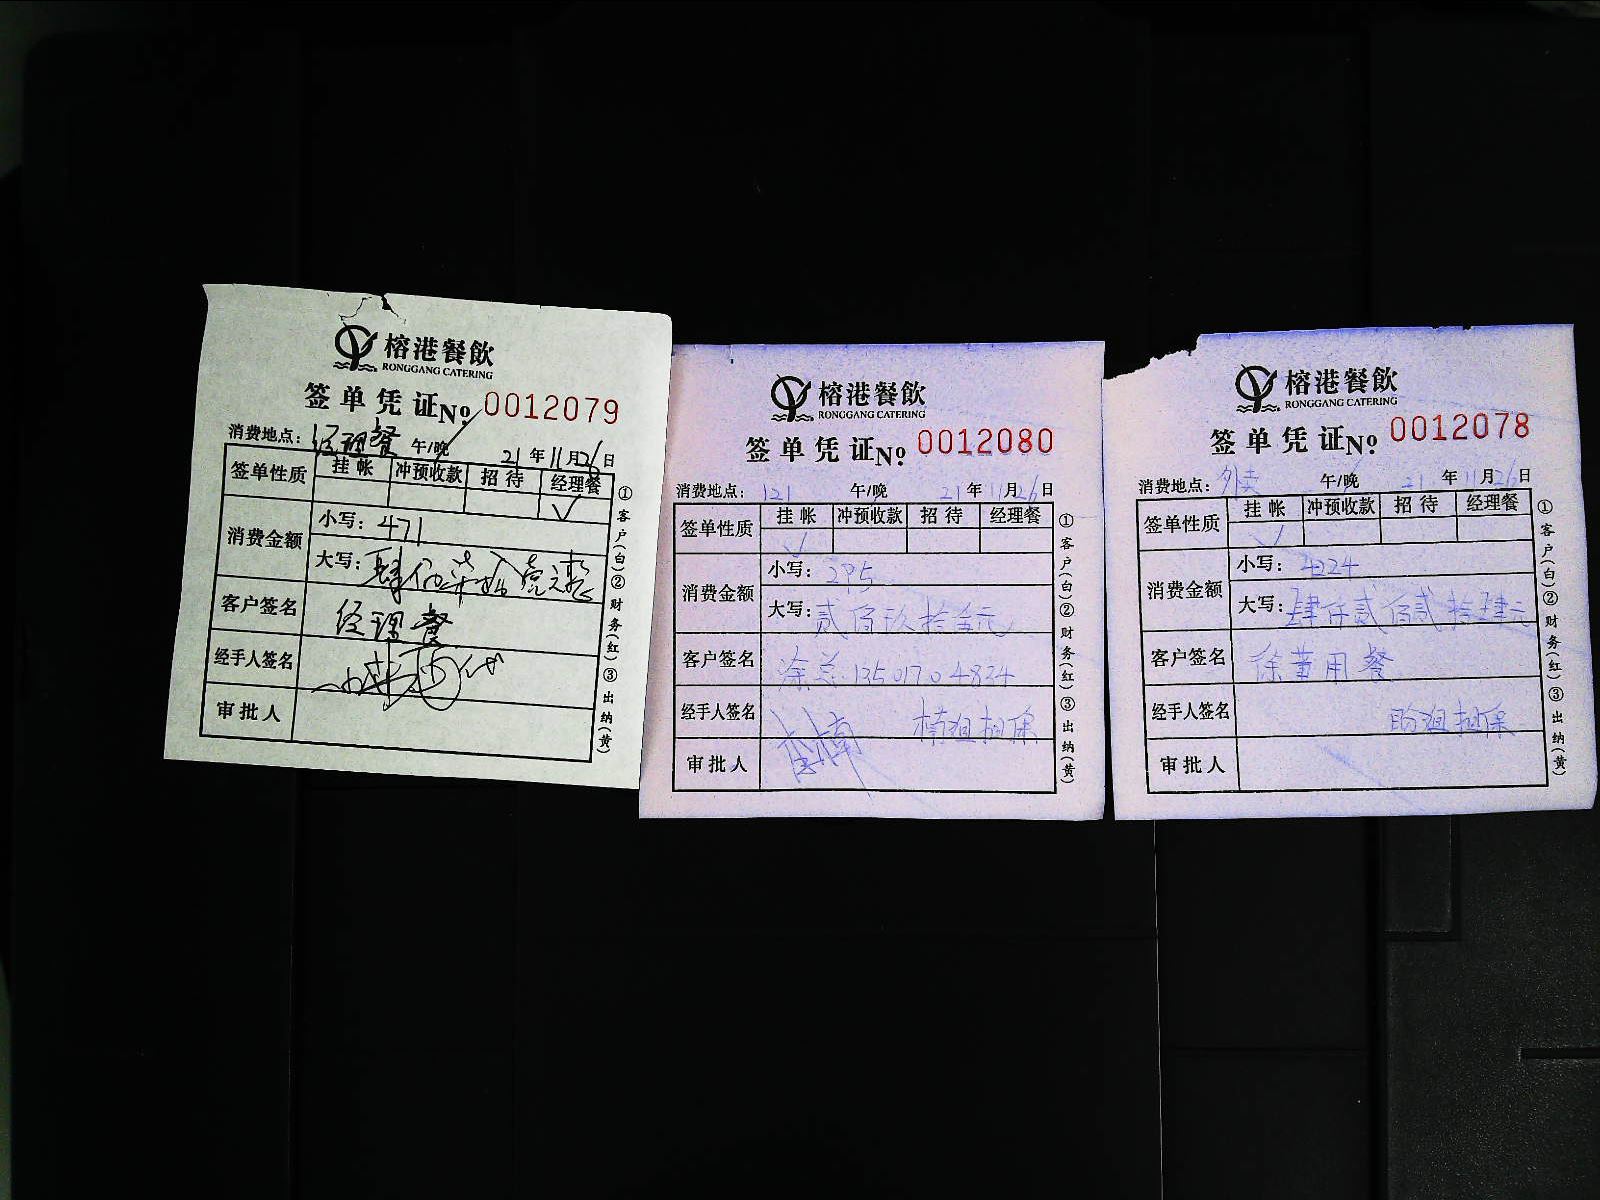 榕港餐飲
RONGGANG CATERING
签单凭证 No. 0012079
消费地点：经理餐 午/晚 21年11月26日
签单性质 挂帐 冲预收款 招待 经理餐
✓
消费金额 小写：471
大写：肆佰柒拾壹元整
客户签名 经理餐
经手人签名
审批人
①客户(白)②财务(红)③出纳(黄)
榕港餐飲
RONGGANG CATERING
签单凭证 No. 0012080
消费地点：121 午/晚 21年11月26日
签单性质 挂帐 冲预收款 招待 经理餐
✓
消费金额 小写：295
大写：贰佰玖拾伍元
客户签名 涂总 13501704834
经手人签名 楠姐担保
审批人
①客户(白)②财务(红)③出纳(黄)
榕港餐飲
RONGGANG CATERING
签单凭证 No. 0012078
消费地点：外卖 午/晚 21年11月26日
签单性质 挂帐 冲预收款 招待 经理餐
✓
消费金额 小写：4224
大写：肆仟贰佰贰拾肆元
客户签名 徐董用餐
经手人签名 姐担保
审批人
①客户(白)②财务(红)③出纳(黄)